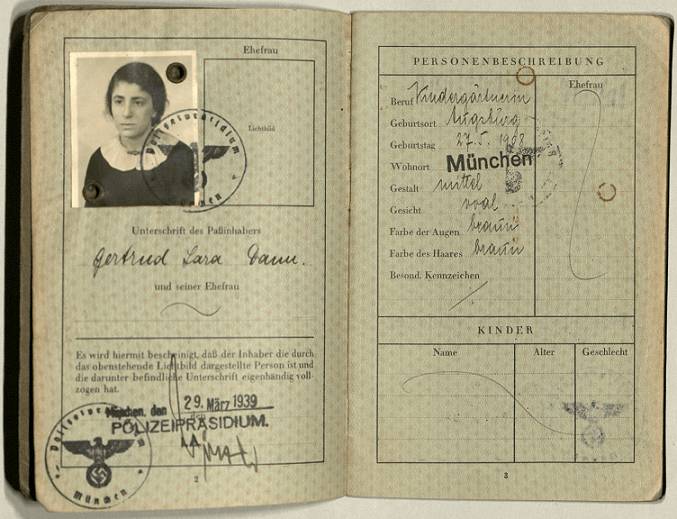 Ehefrau
Lichtbild
Polizeipräsidium
Unterschrift des Paßinhabers
Gertrud Sara Dann.
und seiner Ehefrau
Es wird hiermit bescheinigt, daß der Inhaber die durch
das obenstehende Lichtbild dargestellte Person ist und
die darunter befindliche Unterschrift eigenhändig voll-
zogen hat.
München, den 29. März 1939
den
POLIZEIPRÄSIDIUM.
Polizeipräsidium
München
2
PERSONENBESCHREIBUNG
Ehefrau
Beruf Kindergärtnerin
Geburtsort Augsburg
Geburtstag 27.5.1908
Wohnort München
Gestalt mittel
Gesicht oval
Farbe der Augen braun
Farbe des Haares braun
Besond. Kennzeichen
KINDER
Name Alter Geschlecht
3